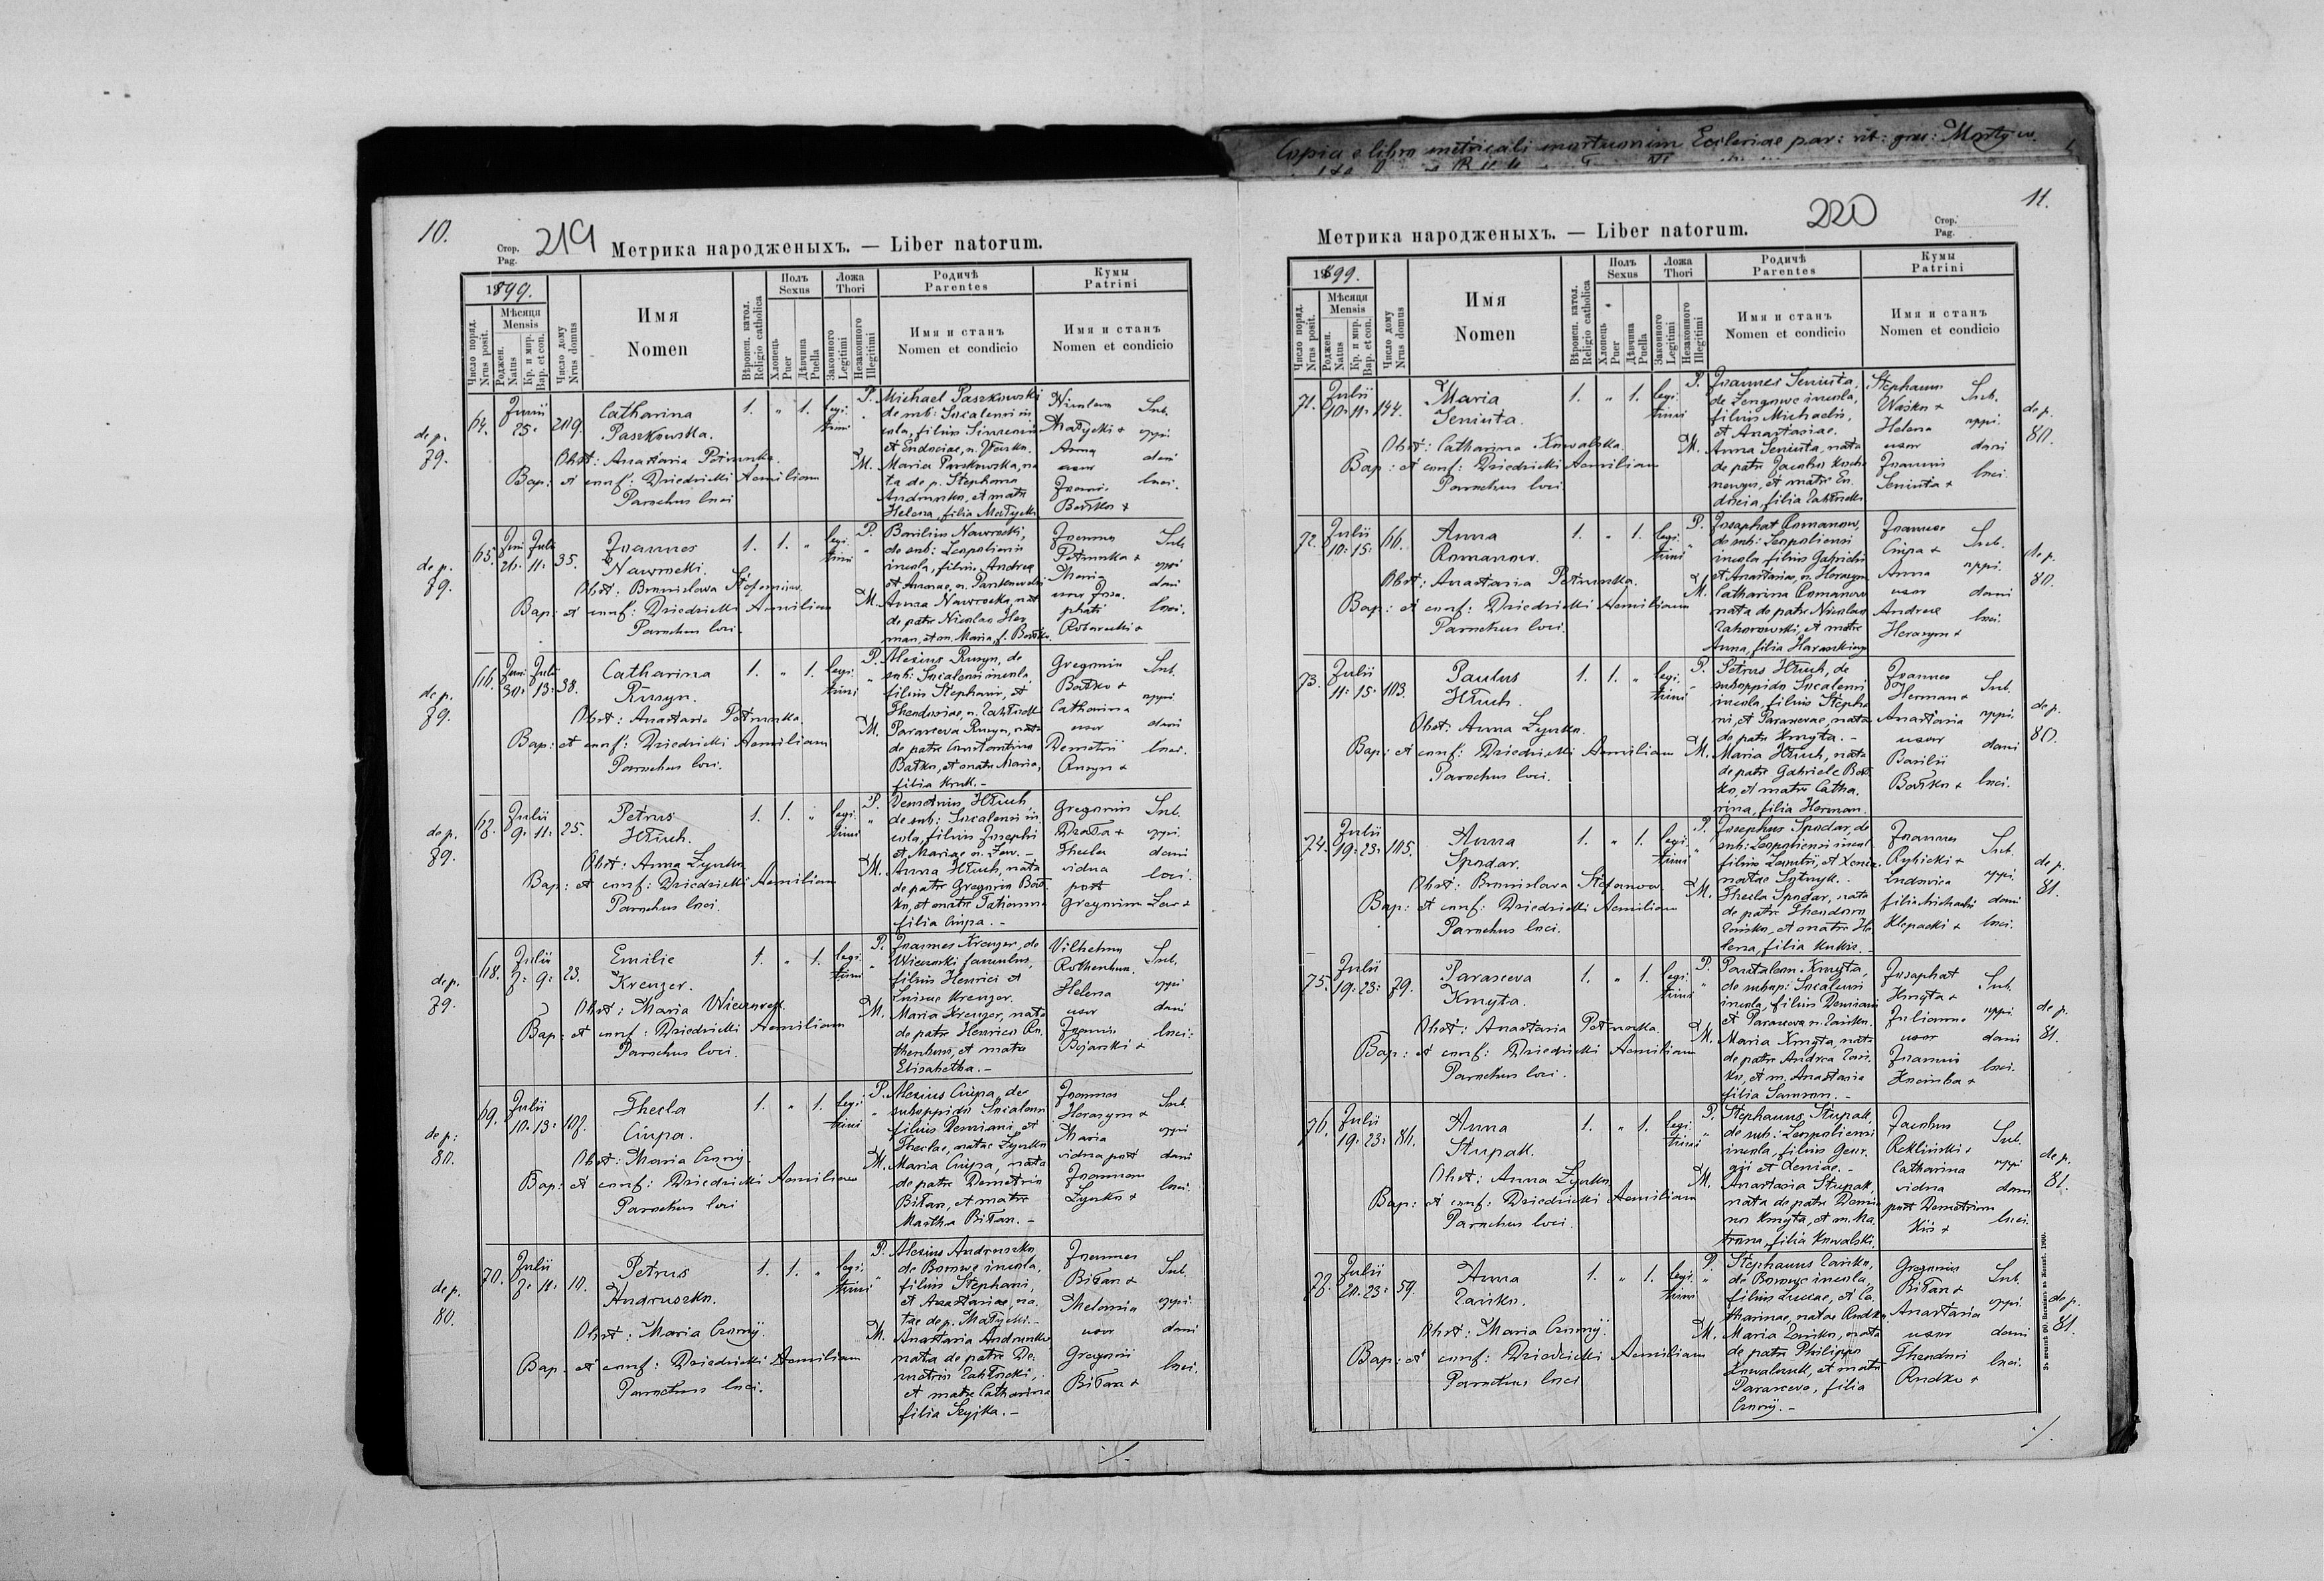 Copia e libro metricali mortuorum Ecclesiae par: rit: graec:
10.
Стор.
Pag.
219
Метрика народженыхъ. — Liber natorum.
1899.
Число поряд.
Nrus posit.
Мѣсяця
Mensis
Роджен.
Natus
Кр. и мир.
Bap. et con.
Число дому
Nrus domus
Имя
Nomen
Вѣроисп. катол.
Religio catholica
Полъ
Sexus
Хлопець
Puer
Дѣвчина
Puella
Ложа
Thori
Законного
Legitimi
Незаконного
Illegitimi
Родичѣ
Parentes
Имя и станъ
Nomen et condicio
Кумы
Patrini
Имя и станъ
Nomen et condicio
de p.
79.
64.
Junii
25.
209.
Catharina
Paszkowska.
1. " 1. legi
timi
Obst: Anastasia Petruszka
Bap: et conf: Dziedzicki Aemilian
Parochus loci
P. Michael Paszkowski
de sub: Socalensi in
cola, filius Simeonis
et Eudociae, n.
M. Maria Paszkowska, na
ta de p. Stephano
Andruszko, et matre
Helena, filia Matycki
Nicolaus
Matycki +
Anna
uxor
Joannis
Bośko +
Sub.
oppi
dani
loci.
de p.
79.
65.
Juni Juli
26. 11.
35.
Joannes
Nawrocki.
1. 1. " legi
timi
Obst: Bronislava Stefanow
Bap: et conf: Dziedzicki Aemilian
Parochus loci
P. Basilius Nawrocki,
de sub: Leopoliensi
incola, filius Andrea
et Annae, n. Paszkowski
M. Anna Nawrocka, nat
de patre Nicolao Her
man, et m. Maria, f. Bośko.
Joannes
Petruszka +
Maria
uxor Josa.
phati
Sub
oppi
dani
loci.
de p.
79.
66.
Juni Juli
30. 13.
38.
Catharina
Rusyn.
1. " 1. legi
timi
Obst: Anastasia Petruszka
Bap: et conf: Dziedzicki Aemilian
Parochus loci.
P. Alexius Rusyn, de
sub: Socalensi incola,
filius Stephani, et
Theodosiae, n.
M. Parasceva Rusyn, nata
de patre Constantino
Batko, et matre Maria,
filia Kruk. -
Gregorius
Batko +
Catharina
uxor
Demetrii
Rusyn +
Sub.
oppi
dani
loci.
de p.
79.
67.
Julii
9. 11.
25.
Petrus
Hłuch.
1. 1. " legi
timi
Obst: Anna Zynko
Bap: et conf: Dziedzicki Aemilian
Parochus loci.
P. Demetrius Hłuch,
de sub: Socalensi in
cola, filius Josephi
et Mariae n. Zew. -
M. Anna Hłuch, nata
de patre Gregorio Boś
ko, et matre Tatianna
filia Ciupa. -
Gregorius
Thecla
vidua
post
Gregorium Zew +
Sub.
oppi.
dani
loci.
de p.
79.
68.
Julii
7. 9.
23.
Emilie
Kreuzer.
1. " 1. legi
timi
Obst: Maria
Bap: et conf: Dziedzicki Aemilian
Parochus loci.
P. Joannes Kreuzer, de
famulus,
filius Henrici et
Luisae Kreuzer.
M. Maria Kreuzer, nata
de patre Henrico Ro
thenbus, et matre
Elisabetha. -
Vilhelmus
Rothenbus.
Helena
uxor
Joannis
Bojarski +
Sub.
oppi
dani
loci.
de p.
80.
69.
Julii
10. 13.
107.
Thecla
Ciupa.
1. " 1. legi
timi
Obst: Maria Czorny
Bap: et conf: Dziedzicki Aemilian
Parochus loci
P. Alexius Ciupa, de
suboppido Socalensi
filius Demiani, et
Theclae, natae Zynko
M. Maria Ciupa, nata
de patre Demetrio
Biłan, et matre
Martha Biłan. -
Joannes
Herasym +
Maria
vidua post
Joannem
Zynko +
Sub.
oppi
dani
loci.
de p.
80.
70.
Julii
7. 11.
10.
Petrus
Andruszko.
1. 1. " legi.
timi
Obst: Maria Czorny.
Bap. et conf: Dziedzicki Aemilian
Parochus loci.
P. Alexius Andruszko
de Borowe incola,
filius Stephani,
et Anastasiae, na.
tae de p. Matycki. -
M. Anastasia Andruszko
nata de patre De.
metrio
et matre Catharina
filia Szyjka. -
Joannes
Biłan +
Melania
uxor
Gregorii
Biłan +
Sub.
oppi.
dani
loci.
./.
11.
220
Стор.
Pag.
Метрика народженыхъ. — Liber natorum.
1899.
Число поряд.
Nrus posit.
Мѣсяця
Mensis
Роджен.
Natus
Кр. и мир.
Bap. et con.
Число дому
Nrus domus
Имя
Nomen
Вѣроисп. катол.
Religio catholica
Полъ
Sexus
Хлопець
Puer
Дѣвчина
Puella
Ложа
Thori
Законного
Legitimi
Незаконного
Illegitimi
Родичѣ
Parentes
Имя и станъ
Nomen et condicio
Кумы
Patrini
Имя и станъ
Nomen et condicio
71.
Julii
10. 11.
144.
Maria
Seniuta.
1. " 1. legi
timi
Obst: Catharina Kowalska.
Bap: et conf: Dziedzicki Aemilian
Parochus loci
P. Joannes Seniuta,
incola,
filius Michaelis,
et Anastasiae.
M. Anna Seniuta, nata
de patre Jacobo
et matre Eu.
docia, filia
Stephanus
Waśko +
Helena
uxor
Joannis
Seniuta +
Sub.
oppi.
dani
loci.
de p.
80.
72.
Julii
10. 15.
66.
Anna
Romanow.
1. " 1. legi
timi
Obst: Anastasia Petruszka.
Bap: et conf: Dziedzicki Aemilian
Parochus loci.
P. Josaphat Romanow,
de sub: Leopoliensi
incola filius Gabrielis
et Anastasiae, n. Herasym
M. Catharina Romanow
nata de patre Nicolao
et matre
Anna, filia
Joannes
Ciupa +
Anna
uxor
Andreae
Herasym +
Sub.
oppi.
dani
loci.
de p.
80.
73.
Julii
11. 15.
103.
Paulus
Hłuch.
1. 1. " legi
timi
Obst: Anna Zynko.
Bap: et conf: Dziedzicki Aemilian
Parochus loci.
P. Petrus Hłuch, de
suboppido Socalensi
incola, filius Stepha
ni, et Parascevae, nata
de patre Kmyta. -
M. Maria Hłuch, nata
de patre Gabriele Boś.
ko, et matre Catha.
rina, filia Herman.
Joannes
Herman +
Anastasia
uxor
Basilii
Bośko +
Sub.
oppi.
dani
loci.
de p.
80.
74.
Julii
19. 23.
105.
Anna
Spodar.
1. " 1. legi
timi
Obst: Bronislava Stefanow
Bap: et conf: Dziedzicki Aemilian
Parochus loci.
P. Josephus Spodar, de
sub: Leopoliensi incol
filius et Xenia
natae
M. Thecla Spodar, nata
de patre Theodoro
Zańko, et matre He
lena, filia
Joannes
Rybicki +
Ludovica
filia Michaelis
Klepacki +
Sub.
oppi.
dani
loci.
de p.
81.
75.
Julii
19. 23.
79.
Parasceva
Kmyta.
1. " 1. legi
timi
Obst: Anastasia Petruszka.
Bap: et conf: Dziedzicki Aemilian
Parochus loci.
P. Pantaleon Kmyta,
de subop: Socalensi
incola, filius Demiani
et Parasceva n. Zańko.
M. Maria Kmyta, nata
de patre Andrea Zań.
ko, et m. Anastasia
filia
Josaphat
Kmyta +
Julianna
uxor
Joannis
Sub.
oppi
dani
loci.
de p.
81.
76.
Julii
19. 23.
86.
Anna
Stupak.
1. " 1. legi.
timi
Obst: Anna Zynko
Bap: et conf: Dziedzicki Aemilian
Parochus loci.
P. Stephanus Stupak,
de sub: Leopoliensi
incola, filius Geor.
gii et Xeniae. -
M. Anastasia Stupak,
nata de patre Demia
no Kmyta, et m. Ma
trona, filia Kowalski.
Jacobus
Rekliński +
Catharina
vidua
post Demetrium
Kiś +
Sub.
oppi
dani
loci.
de p.
81.
77.
Julii
20. 23.
59.
Anna
Zańko.
1. " 1. legi.
timi
Obst: Maria Czorny.
Bap: et conf: Dziedzicki Aemilian
Parochus loci
P. Stephanus Zańko,
de Borowe incola,
filius Lucae, et Ca.
tharinae, natae Rudko
M. Maria Zańko, nata
de patre Philippo
Kowalczuk, et matre
Parasceva, filia
Czorny. -
Gregorius
Biłan +
Anastasia
uxor
Theodori
Rudko +
Sub.
oppi.
dani
loci.
de p.
81.
./.